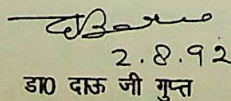 2.8.92
डा0 दाऊ जी गुप्त